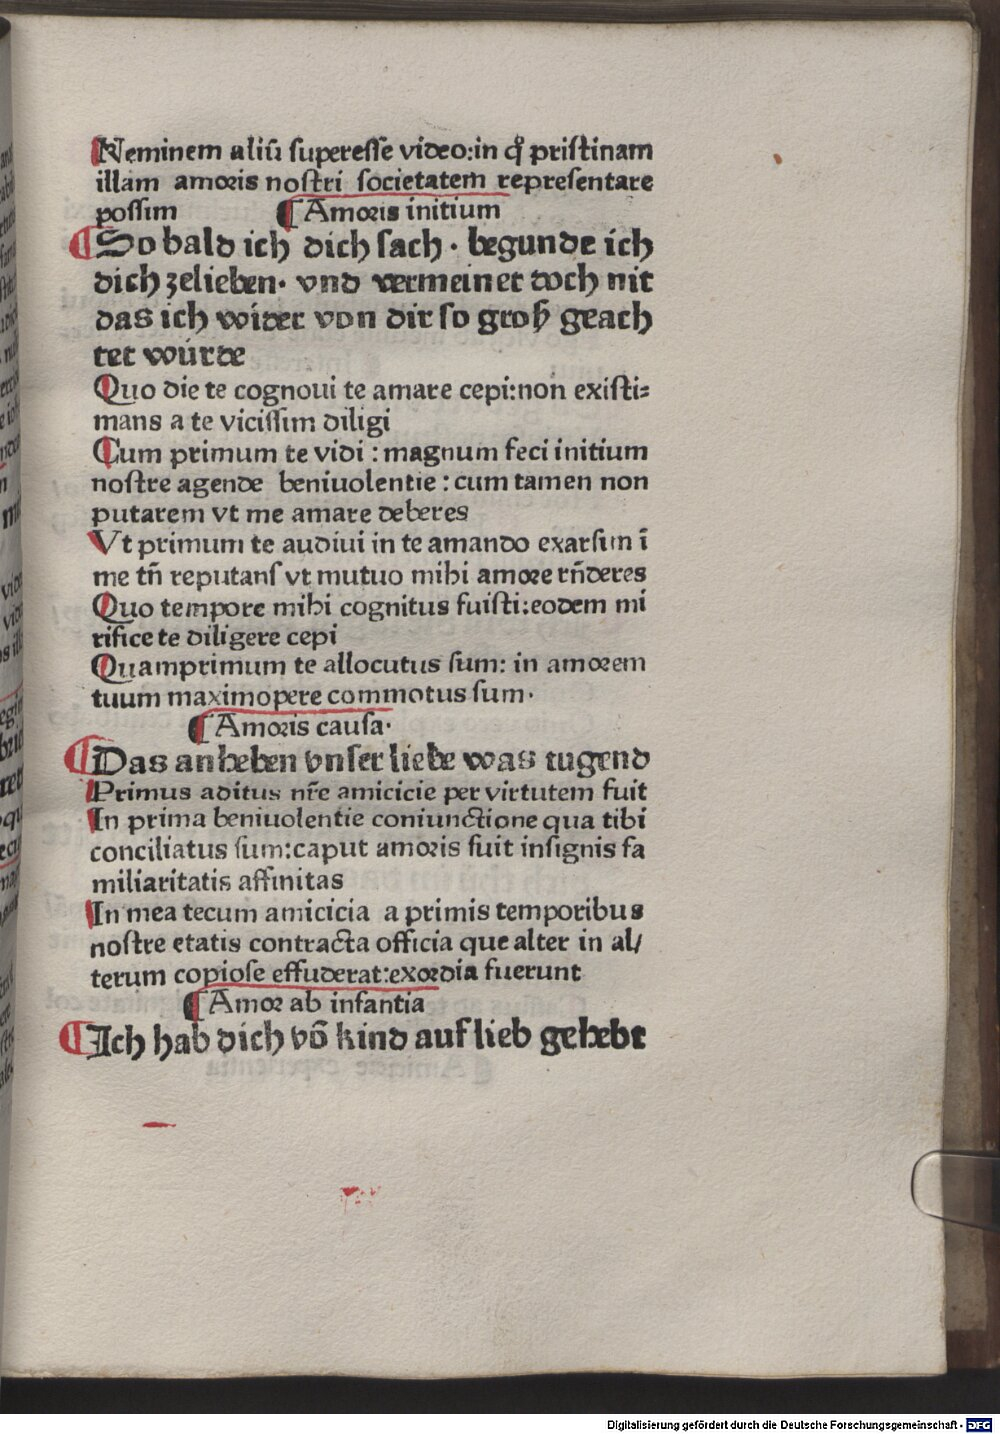 Neminem aliū superesse video:in q̄ pristinam
illam amoris nostri societatem representare
possim ¶ Amoris initium
¶ So bald ich dich sach · begunde ich
dich zelieben· vnd vermeinet doch nit
das ich wider von dir so groß geach
tet würde
Quo die te cognoui te amare cepi:non existi=
mans a te vicissim diligi
Cum primum te vidi : magnum feci initium
nostre agende beniuolentie : cum tamen non
putarem vt me amare deberes
Vt primum te audiui in te amando exarsim ī
me tn̄ reputans vt mutuo mihi amore rn̄deres
Quo tempore mihi cognitus fuisti:eodem mi
rifice te diligere cepi
Quamprimum te allocutus sum: in amorem
tuum maximopere commotus sum·
¶ Amoris causa·
¶ Das anheben vnser liebe was tugend
Primus aditus nr̄e amicicie per virtutem fuit
In prima beniuolentie coniunctione qua tibi
conciliatus sum:caput amoris fuit insignis fa
miliaritatis affinitas
In mea tecum amicicia a primis temporibus
nostre etatis contracta officia que alter in al/
terum copiose effuderat:exordia fuerunt
¶ Amor ab infantia
¶ Ich hab dich vō kind auf lieb gehebt
Digitalisierung gefördert durch die Deutsche Forschungsgemeinschaft - DFG